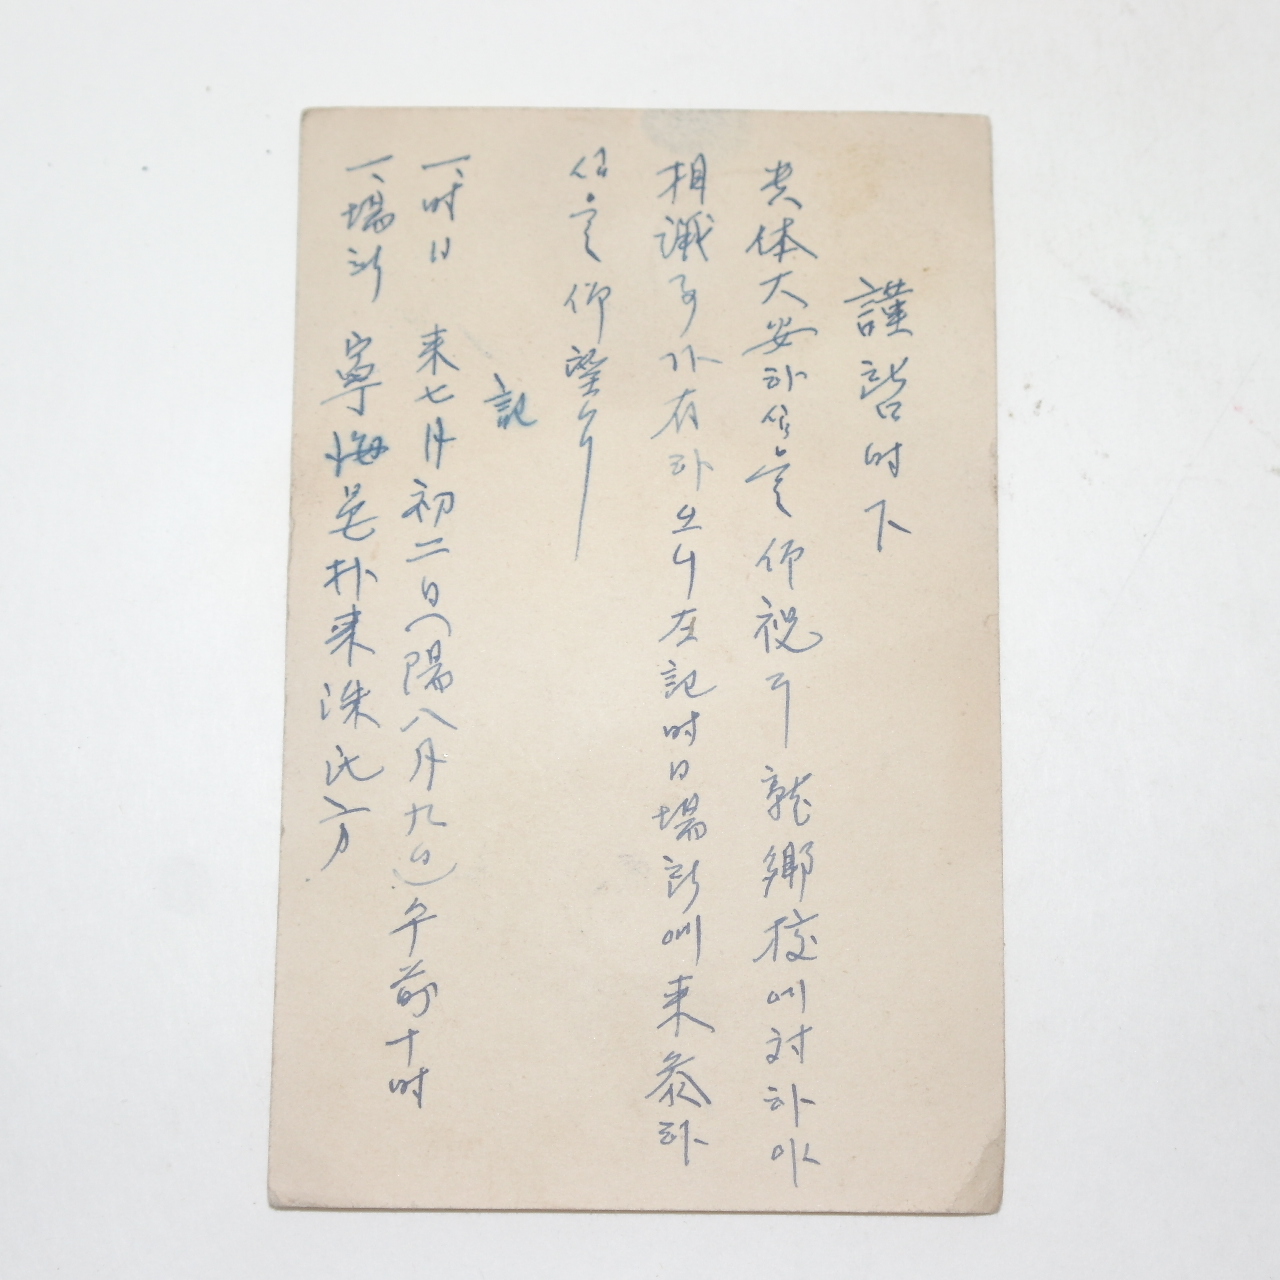 謹啓时下
貴体大安하심을仰祝하며鄕校에対하야
相議事가有하오니左記时日場所에来叅하
심을仰望
記
一、时日 来七月初二日(陽八月九日)午前十时
一、場所 寧海邑朴来洙氏方